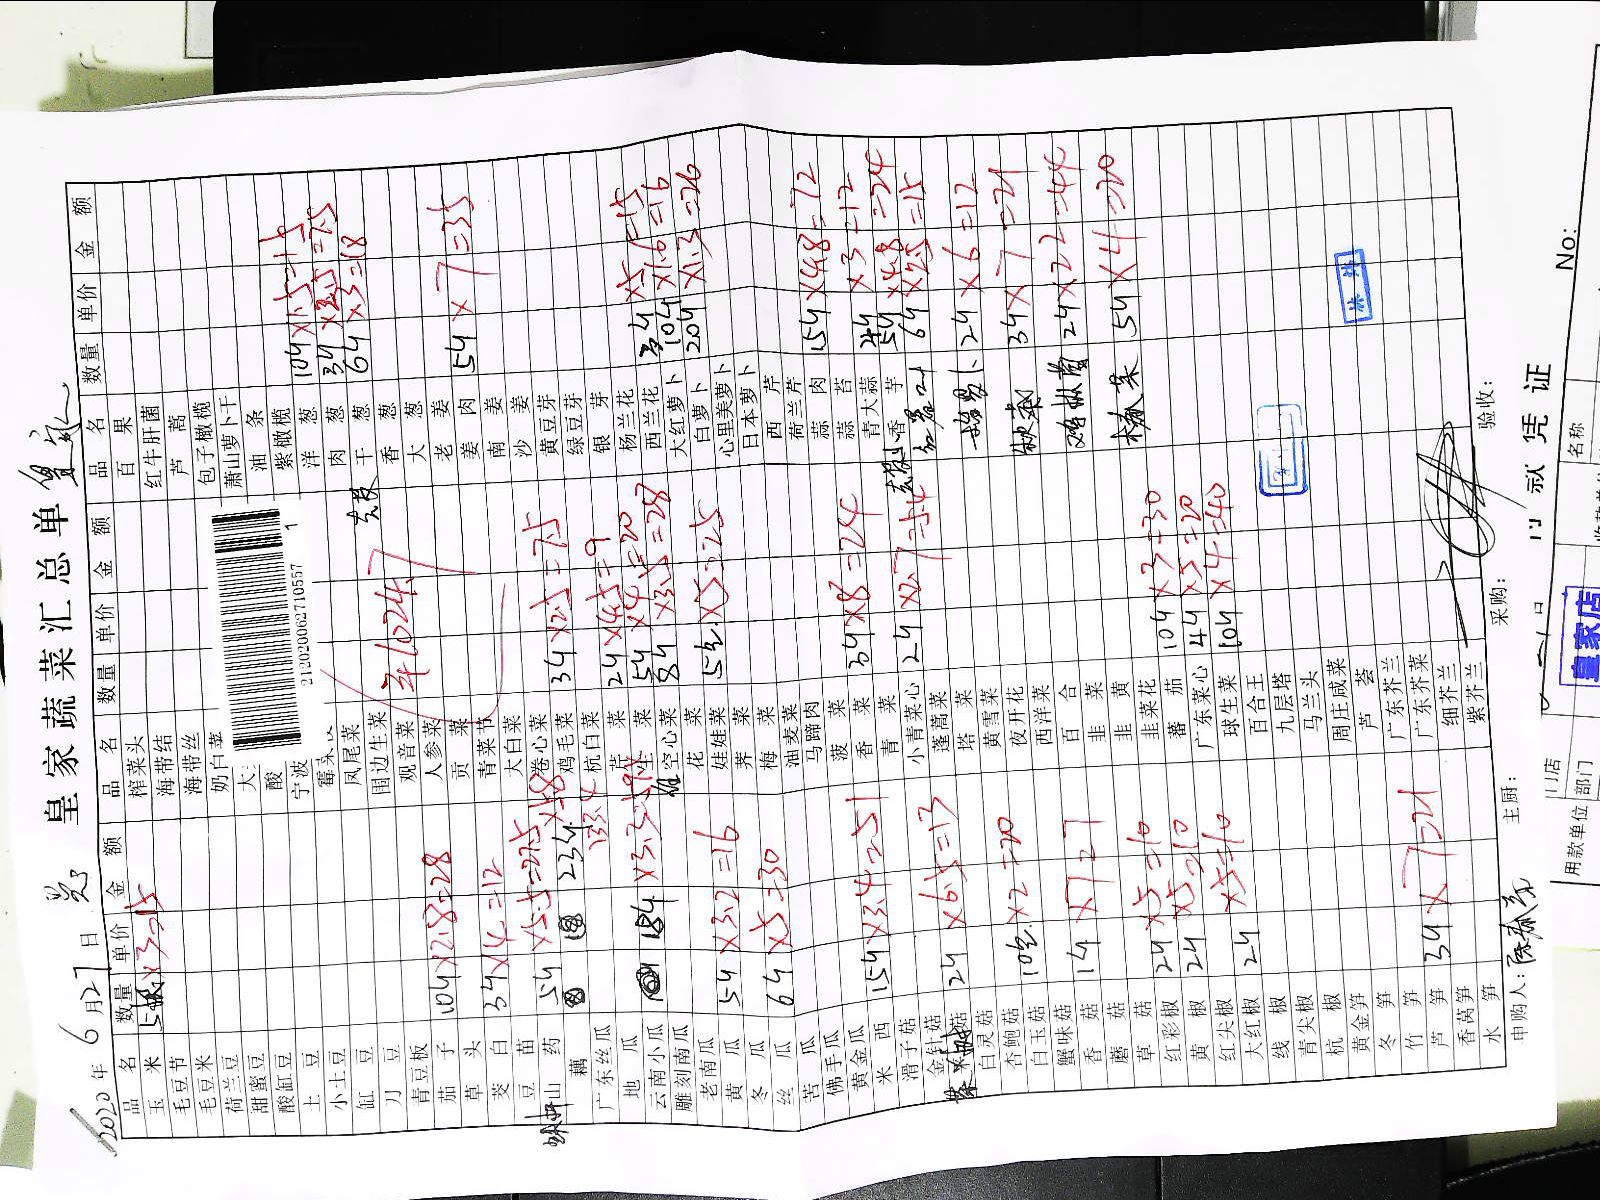 皇家蔬菜汇总单
2020年 6月27日
品名 数量 单价 金额 品名 数量 单价 金额 品名 数量 单价 金额
玉米 ×3=15
毛豆节
毛豆米
荷兰豆
甜蜜豆
酸缸豆
土豆
小土豆
缸豆
刀豆
青豆板
茄子 10斤×2.8=28
草头
茭白 3斤×4=12
豆苗
山药 5斤×5.5=27.5
藕 23斤×5.8 133.4
广东丝瓜
地瓜
云南小瓜 18斤×3.3=59.4
雕刻南瓜
老南瓜
黄瓜 5斤×3.2=16
冬瓜
丝瓜 6斤×5=30
苦瓜
佛手瓜
黄金瓜
米西 15斤×3.4=51
滑子菇
金针菇
2斤×6.5=13
白灵菇
杏鲍菇
白玉菇 10包×2=20
蟹味菇
香菇 1斤×7=7
磨菇
草菇
红彩椒 2斤×5=10
黄椒 2斤×5=10
红尖椒
大红椒 2斤×5=10
线椒
青尖椒
杭椒
黄金笋
冬笋
竹笋
芦笋 3斤×7=21
香莴笋
水笋
榨菜头
海带结
海带丝
奶白菜
大
酸
宁波
凤尾菜
围边生菜
观音菜
人参菜
贡菜
青菜节
大白菜
卷心菜
鸡毛菜 3斤×2.5=7.5
杭白菜
芹菜 2斤×4.5=9
生菜 5斤×4=20
空心菜 8斤×3.5=28
花菜
娃娃菜 5包×5=25
荠菜
梅菜
油麦菜
马蹄肉
菠菜
香菜 3斤×8=24
青菜
小青菜心 2斤×2.7=5.4
蓬蒿菜
塔菜
黄雪菜
夜开花
西洋菜
百合
韭菜
韭黄
韭菜花
蕃茄 10斤×3=30
广东菜心 4斤×5=20
球生菜 10斤×4=40
百合王
九层塔
马兰头
周庄咸菜
芦荟
广东芥兰
广东芥菜
细芥兰
紫芥兰
百果
红牛肝菌
芦蒿
包子橄榄
萧山萝卜干
油条
紫橄榄
洋葱 10斤×1.5=15
肉葱 3斤×2.5=7.5
干葱 6斤×3=18
香葱
大葱
老姜
姜肉 5斤×7=35
南姜
沙姜
黄豆芽
绿豆芽
银芽
杨兰花
西兰花 3斤×5=15
大红萝卜 10斤×1.6=16
白萝卜 20斤×1.3=26
心里美萝卜
日本萝卜
西芹
荷兰芹
蒜肉 15斤×4.8=72
蒜苔
青大蒜 4斤×3=12
香芋 5斤×4.8=24
6斤×2.5=15
2斤×6=12
秋葵 3斤×7=21
2斤×22=44
5斤×4=20
1024.7
2120200062710557
1
申购人:
主厨:
采购:
验收:
No:
付款凭证
皇家店
门店
部门
用款单位
名称